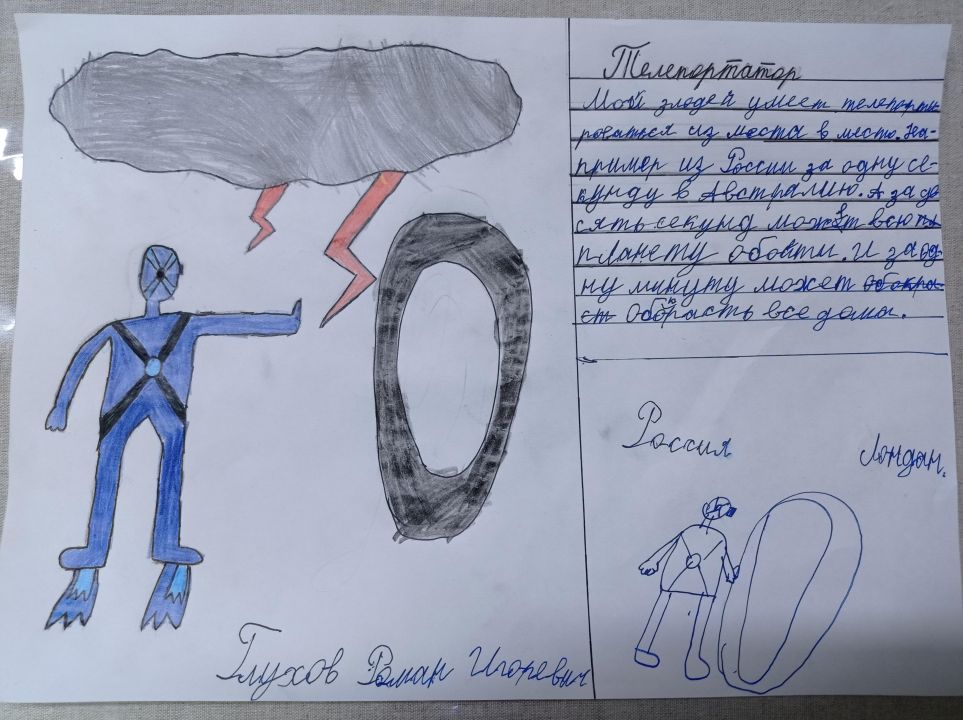 Телепортатор
Мой злодей умеет телепорти
роваться из места в место. На-
пример из России за одну се-
кунду в Австралию. А за де
сять секунд может всю
планету обойти. И за од-
ну минуту может обокра-
ст обокрасть все дома.
Россия
Лондан.
Глухов Роман Игоревич